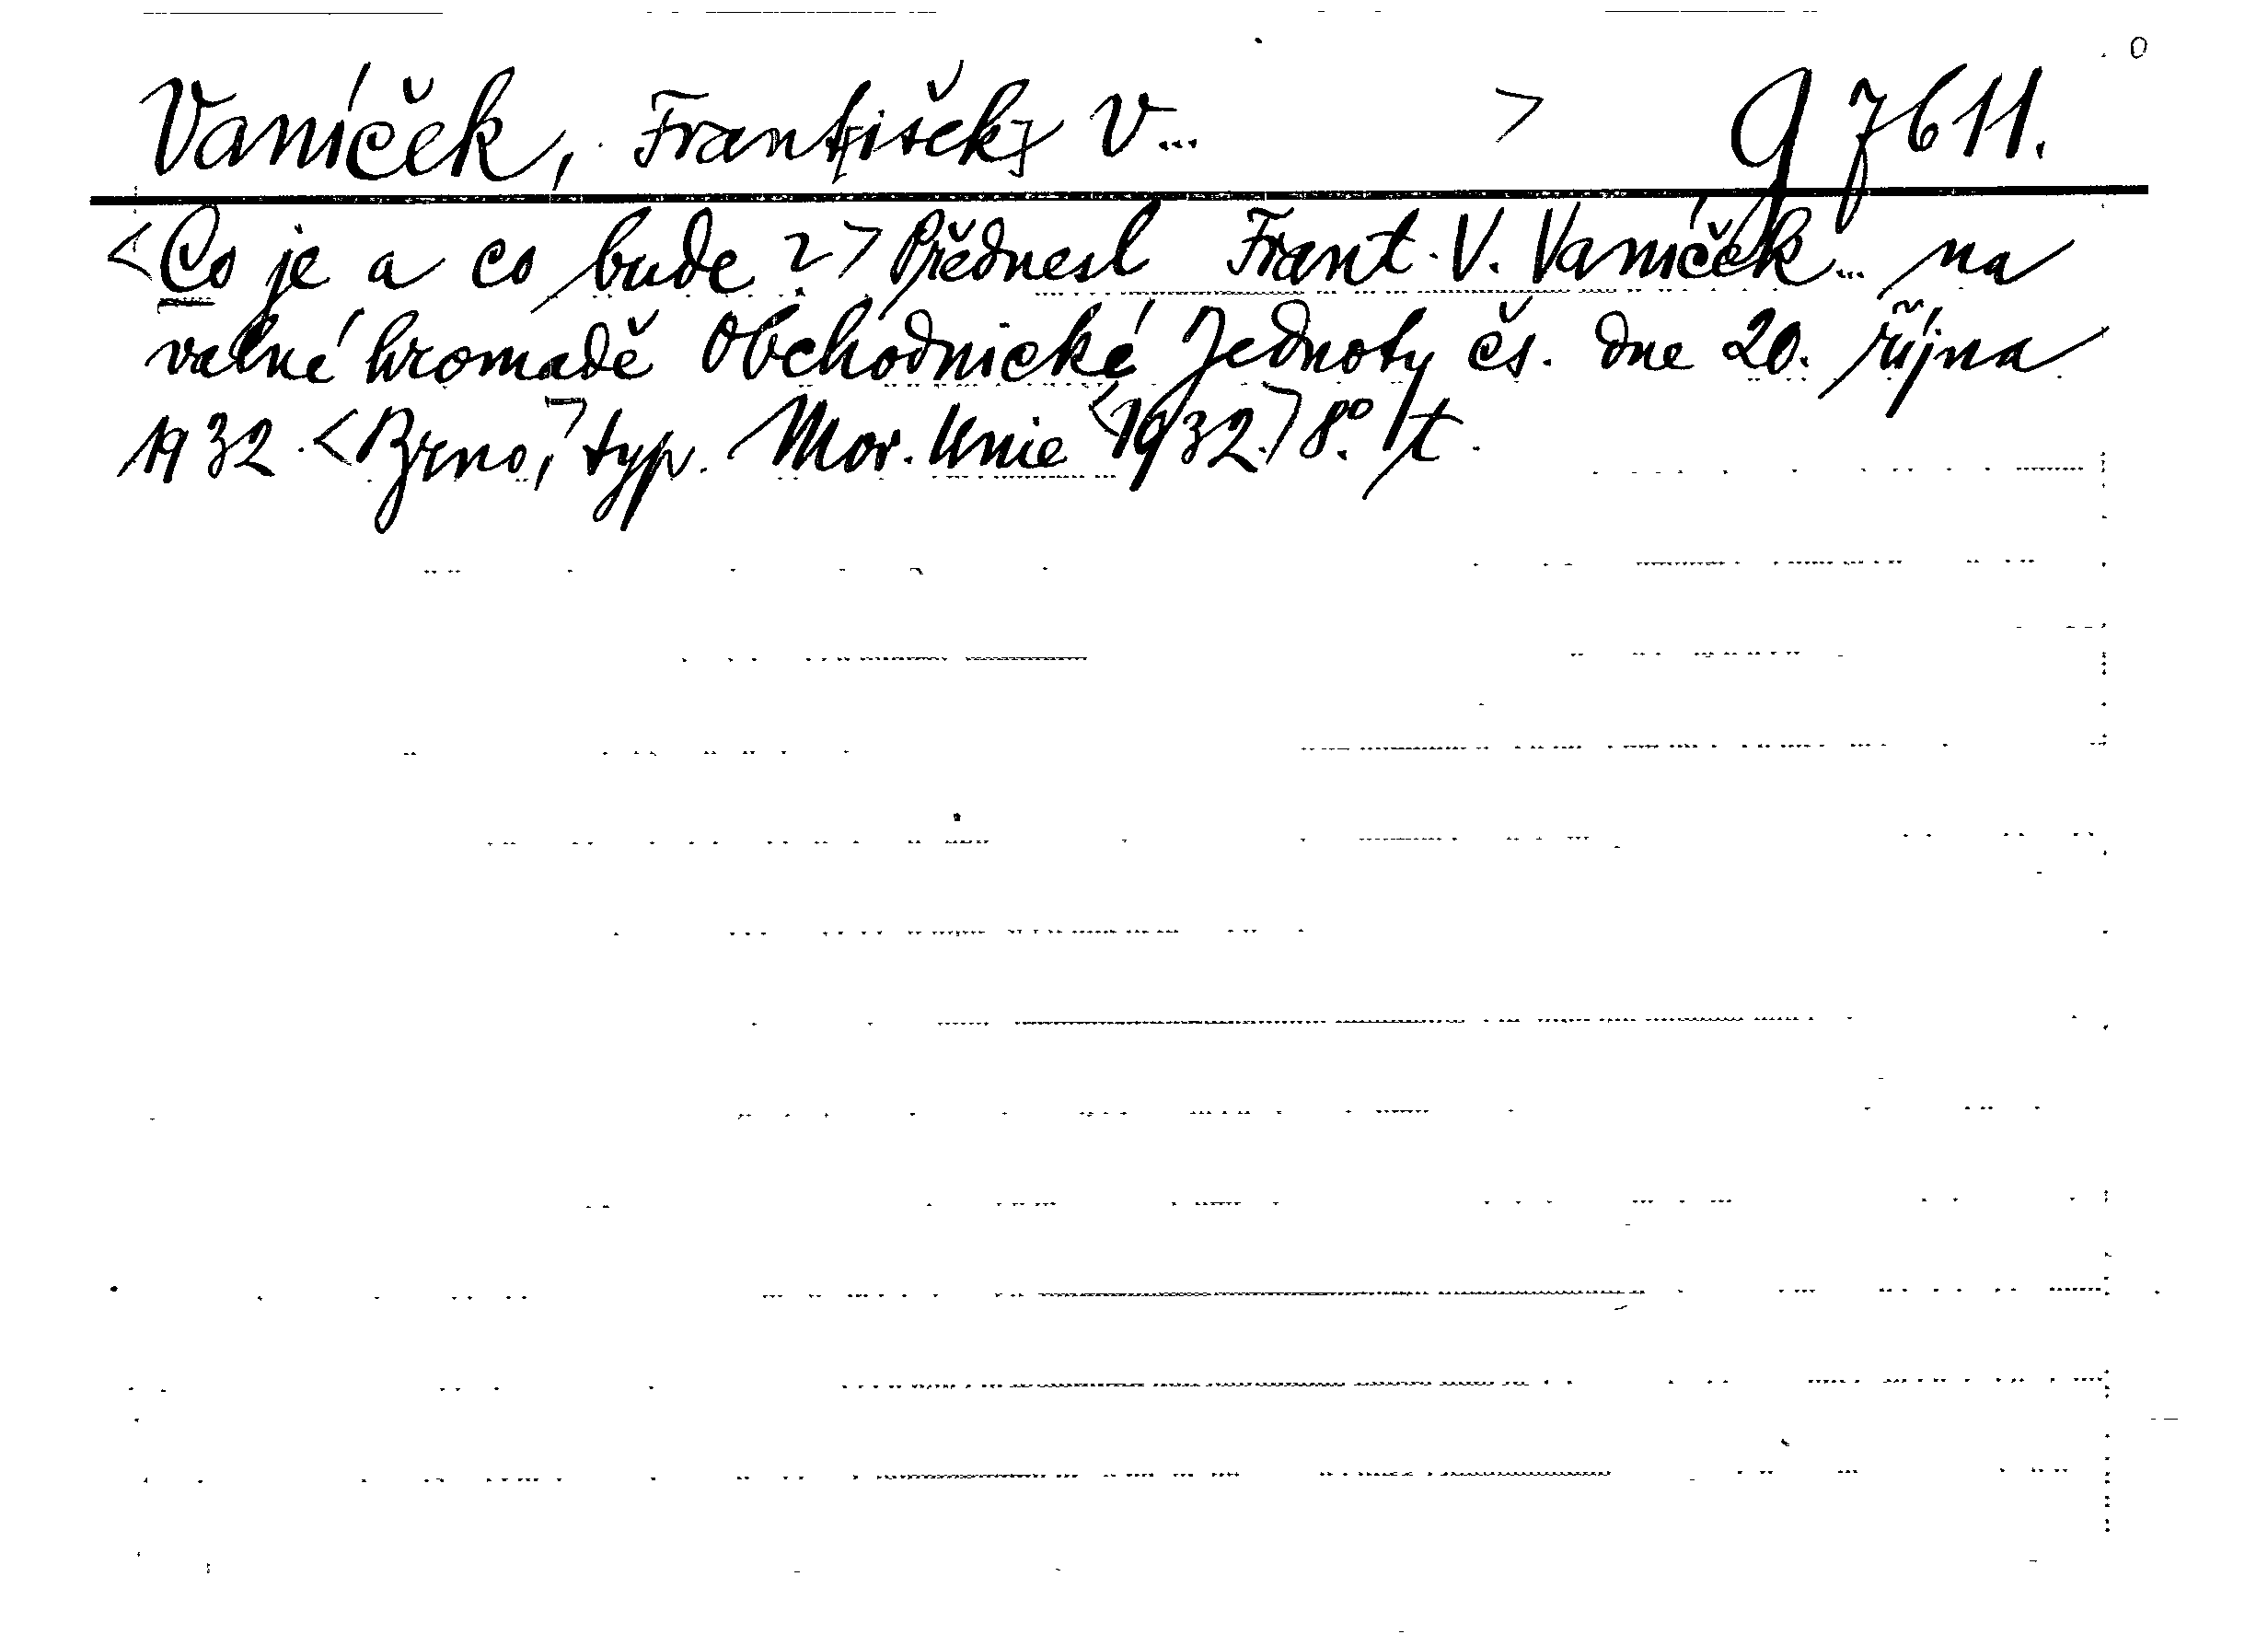 Vaníček, Frant[išek] V... > g 7611.
<Co je a co bude ?> Přednesl Frant. V. Vaníček... na
valné hromadě Obchodnické Jednoty čs. dne 20. října
1932. <Brno,> typ. Mor. Unie <1932.> 8°. t.